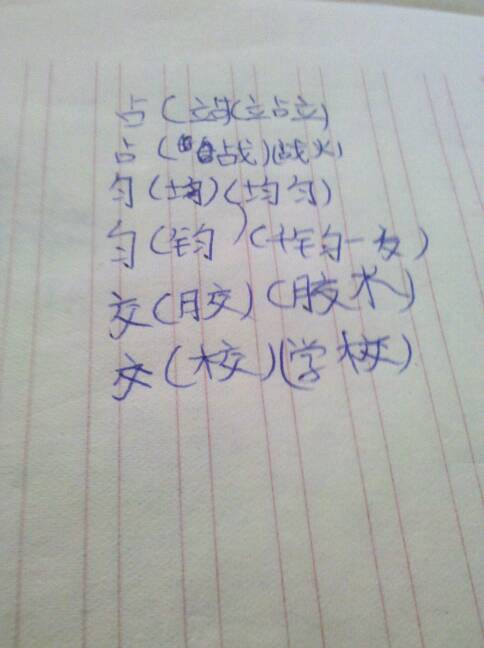 占（站）（站立）
占（战）（战火）
匀（均）（均匀）
匀（钧）（千钧一发）
交（胶）（胶水）
交（校）（学校）